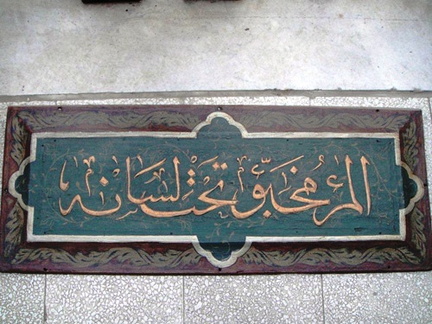 المرء مخبوّ تحت لسانه